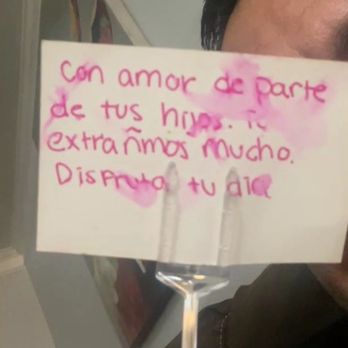 Con amor de parte
de tus hijos. Te
extrañmos mucho.
Disfruta tu dia